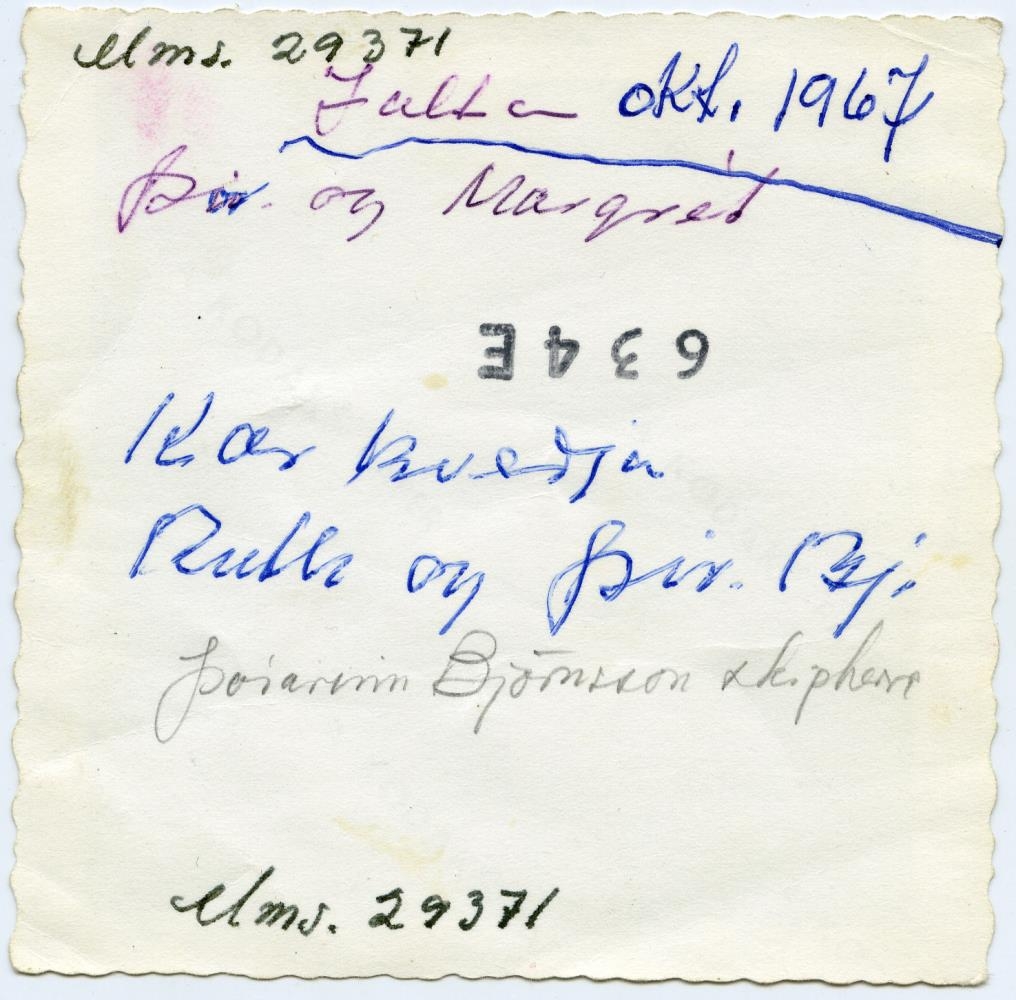 Mms. 29371
Jalta okt. 1967
Þór. og Margrét
634E
Kær kveðja
Ruth og Þór. Bj.
Þórarinn Björnsson skipherra
Mms. 29371